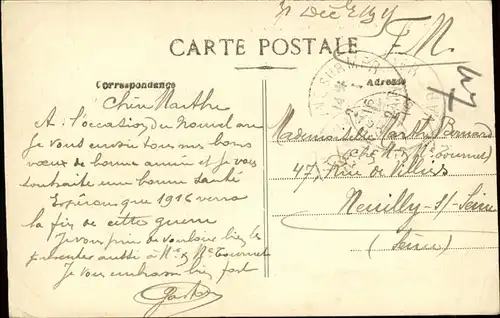 31 Déc
CARTE POSTALE
F. M.
Correspondance
Adresse
Chère Marthe
A l'occasion du nouvel an
Je vous envoie tous mes bons
vœux de bonne année et je vous
souhaite une bonne santé
Espérons que 1916 verra
la fin de cette guerre
Je vous prie de vouloir bien les
présenter aussi à Mr & Me Tournel
Je vous embrasse bien fort
Gaston
Mademoiselle Marthe Bernard
chez Mr Tournel
47, Rue de Villiers
Neuilly-s/-Seine
(Seine)